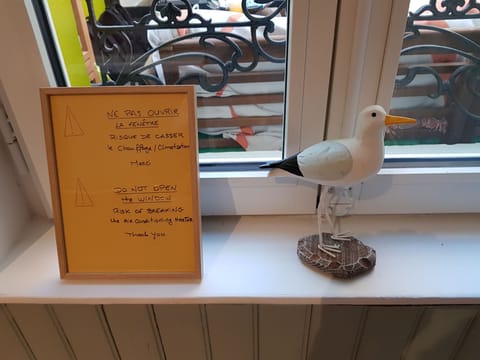 NE PAS OUVRIR
LA FENÊTRE
RISQUE DE CASSER
le Chauffage/Climatisation
Merci
DO NOT OPEN
the WINDOW
RISK OF BREAKING
the Air Conditioning Heater
Thank You